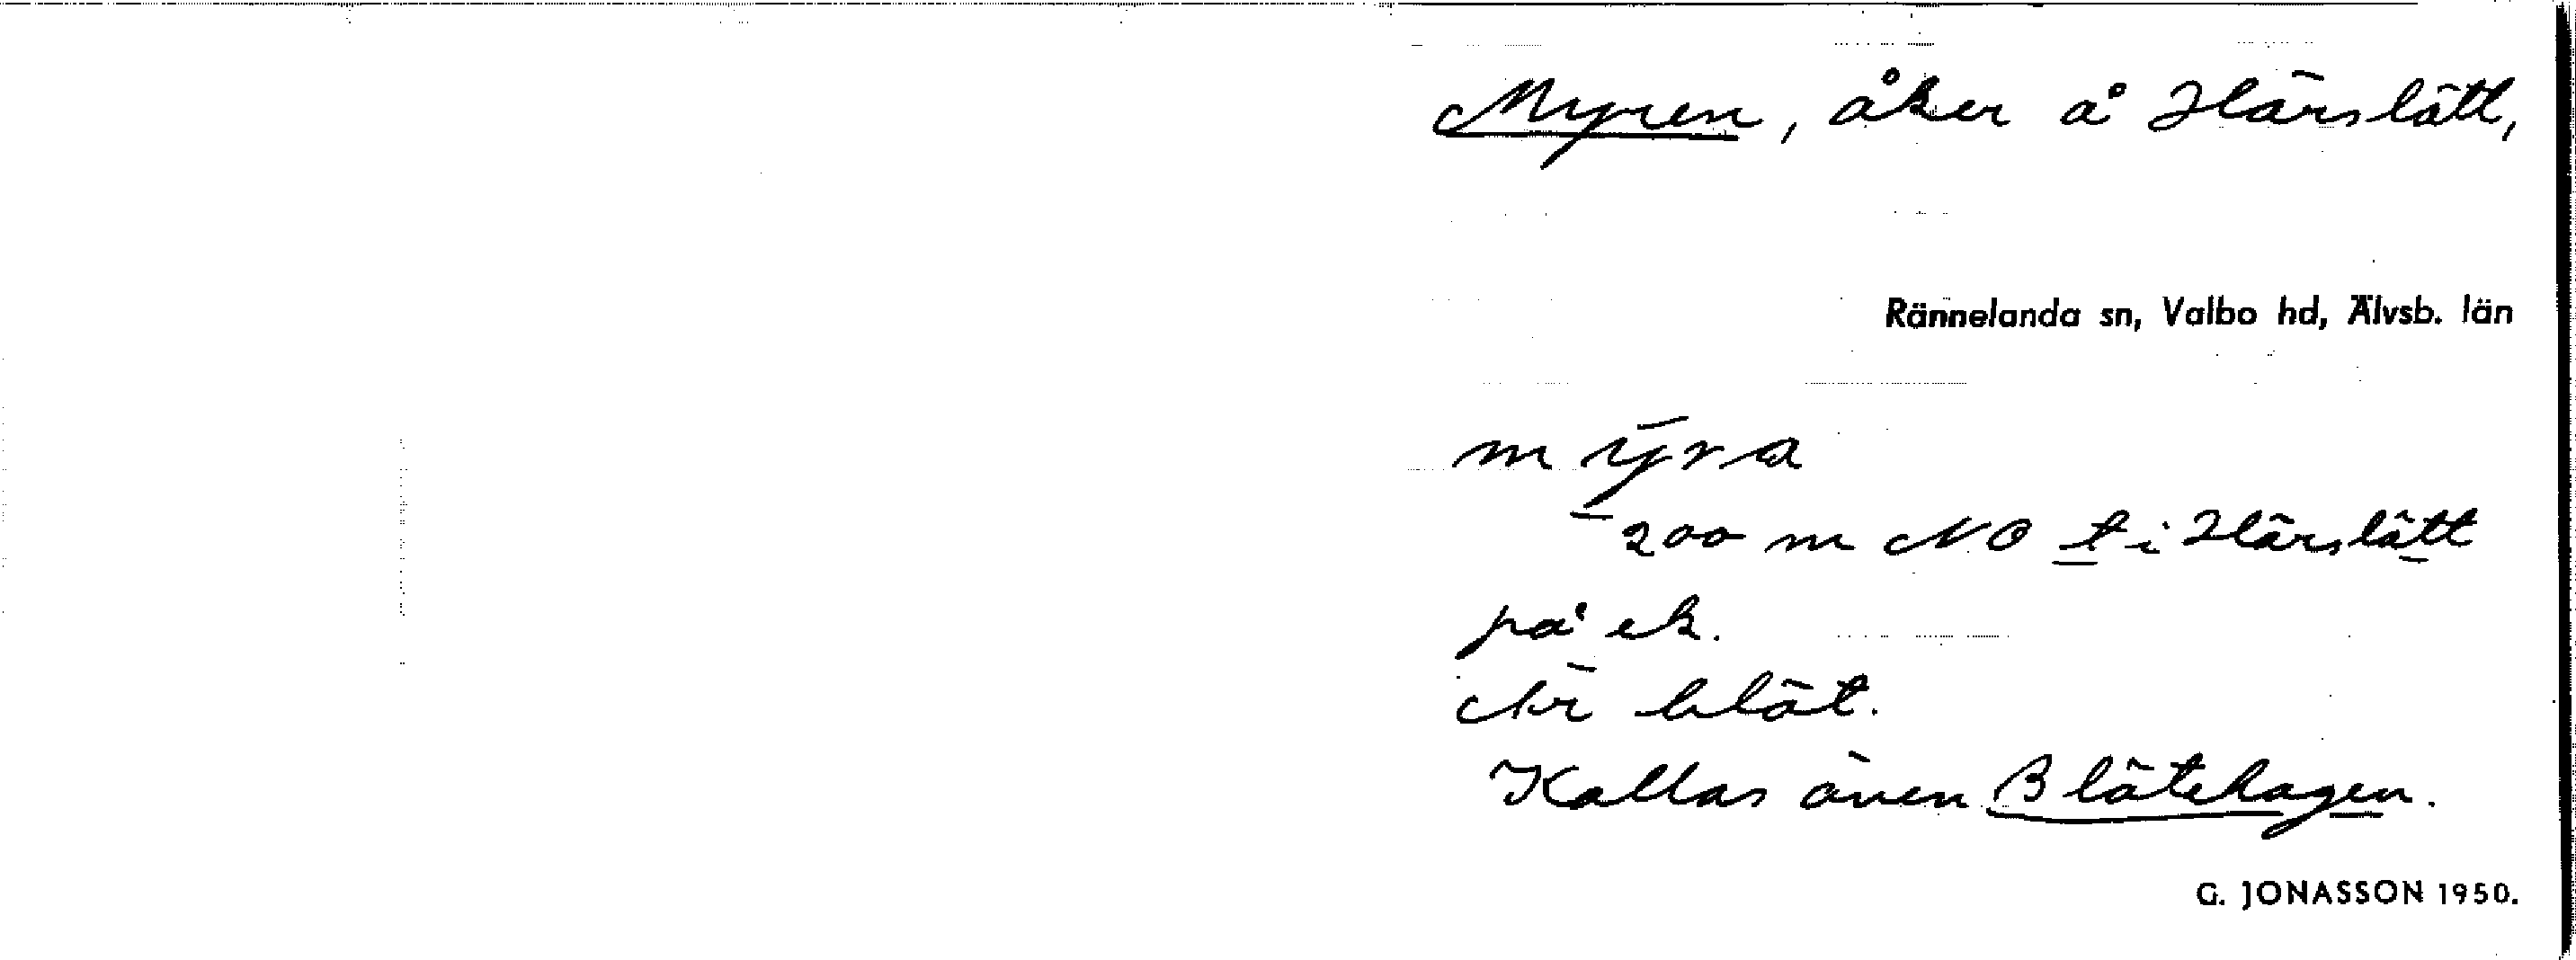 Myren, åker å Härslätt,
Rännelanda sn, Valbo hd, Älvsb. län
mȳra
200 m NO t i Härslätt
på ek.
Är blöt.
Kallas även Blötehagen.
G. JONASSON 1950.